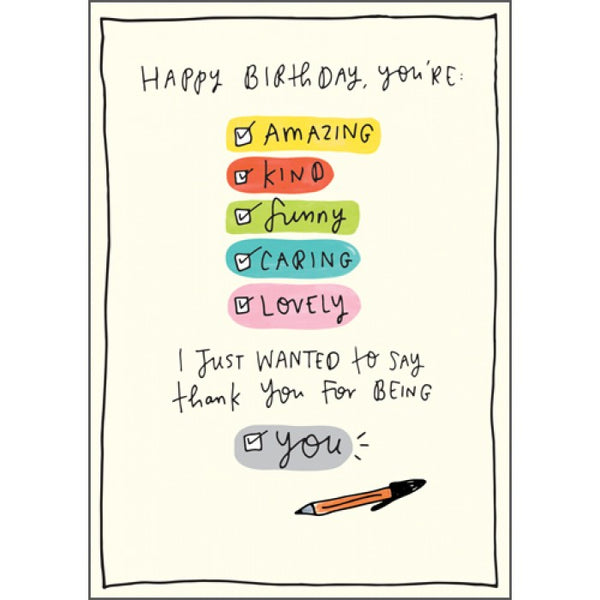 HAPPY BIRthDAY, YOU'RE:
AMAZING
KIND
funny
CARING
LOVELY
I JUST WANTED to SAY
thank You FoR BEING
you